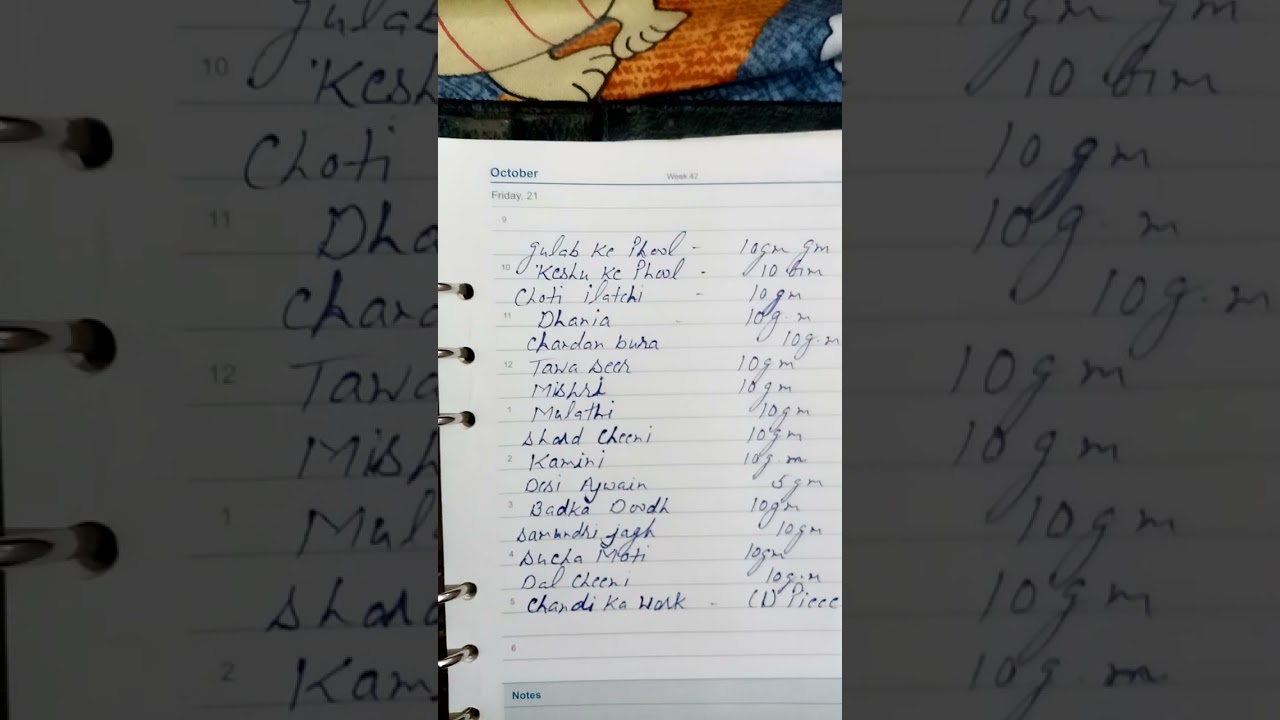 October
Week 42
Friday, 21
9
Gulab Ke Phool - 10gm gm
10 Keshu Ke Phool - 10 gm
Choti ilatchi - 10gm
11 Dhania - 10g.m
Chandan bura 10g.m
12 Tawa seer 10gm
Mishri 10gm
1 Mulathi 10gm
Shard Cheeni 10gm
2 Kamini 10g.m
Desi Ajwain 5gm
3 Badka Doodh 10gm
Samundri jagh 10gm
4 Sucha Moti 10gm
Dal Cheeni 10g.m
5 Chandi Ka Work - (1) Piece
6
Notes